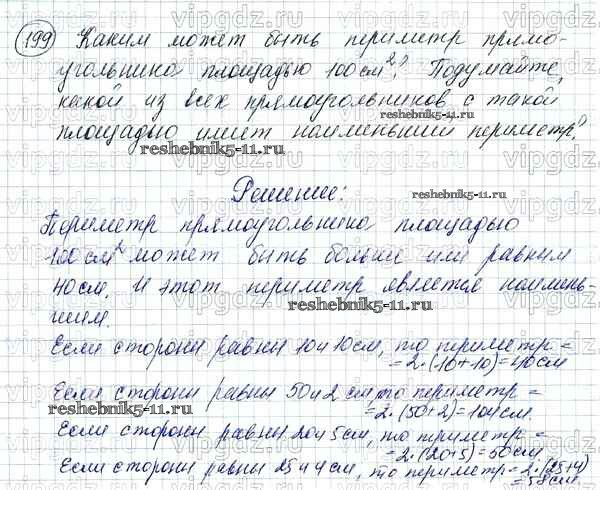 199 Каким может быть периметр прямо-
угольника площадью 100 см²? Подумайте,
какой из всех прямоугольников с такой
площадью имеет наименьший периметр?
reshebnik5-11.ru
Решение:
reshebnik5-11.ru
Периметр прямоугольника площадью
100 см² может быть больше или равным
40 см. И этот периметр является наимень-
reshebnik5-11.ru
шим.
Если стороны равны 10 и 10 см, то периметр =
= 2·(10+10)=40 см
Если стороны равны 50 и 2 см, то периметр =
reshebnik5-11.ru
= 2·(50+2)=104 см.
Если стороны равны 20 и 5 см, то периметр =
= 2·(20+5)=50 см.
Если стороны равны 25 и 4 см, то периметр = 2·(25+4)
= 58 см.